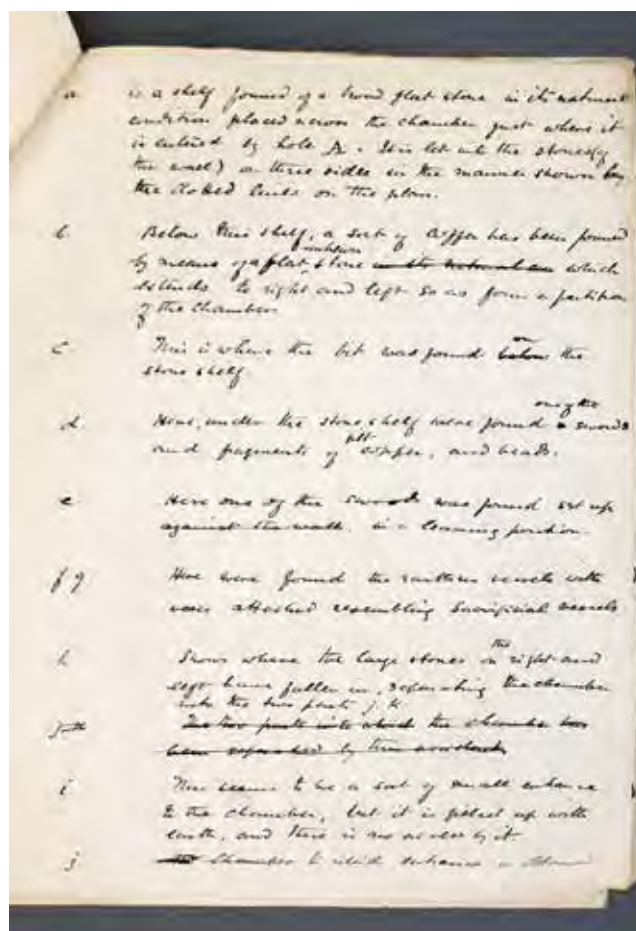 a is a shelf formed of a broad flat stone in its natural
condition placed across the chamber just where it
is entered by hole k. It is let into the stones (of
the wall) on three sides in the manner shown by
the dotted lines on the plan.
b Below this shelf, a sort of coffer has been formed
by means of a flat unhewn stone in its natural which
extends to right and left so as form a partition
of the chamber
c This is where the bit was found on below the
stone shelf
d Here, under the stone shelf were found one of the swords
and fragments of gilt copper, and beads.
e Here one of the swords was found set up
against the wall in a leaning position.
f g Here were found the earthen vessels with
vases attached resembling Sacrificial vessels
h Shows where the large stones on the right and
left have fallen in, separating the chamber
into the two parts j. k
The two parts into which the chamber has
been separated by
i This seems to be a sort of small entrance
to the chamber, but it is filled up with
earth, and there is no access by it
j Chamber to which entrance is